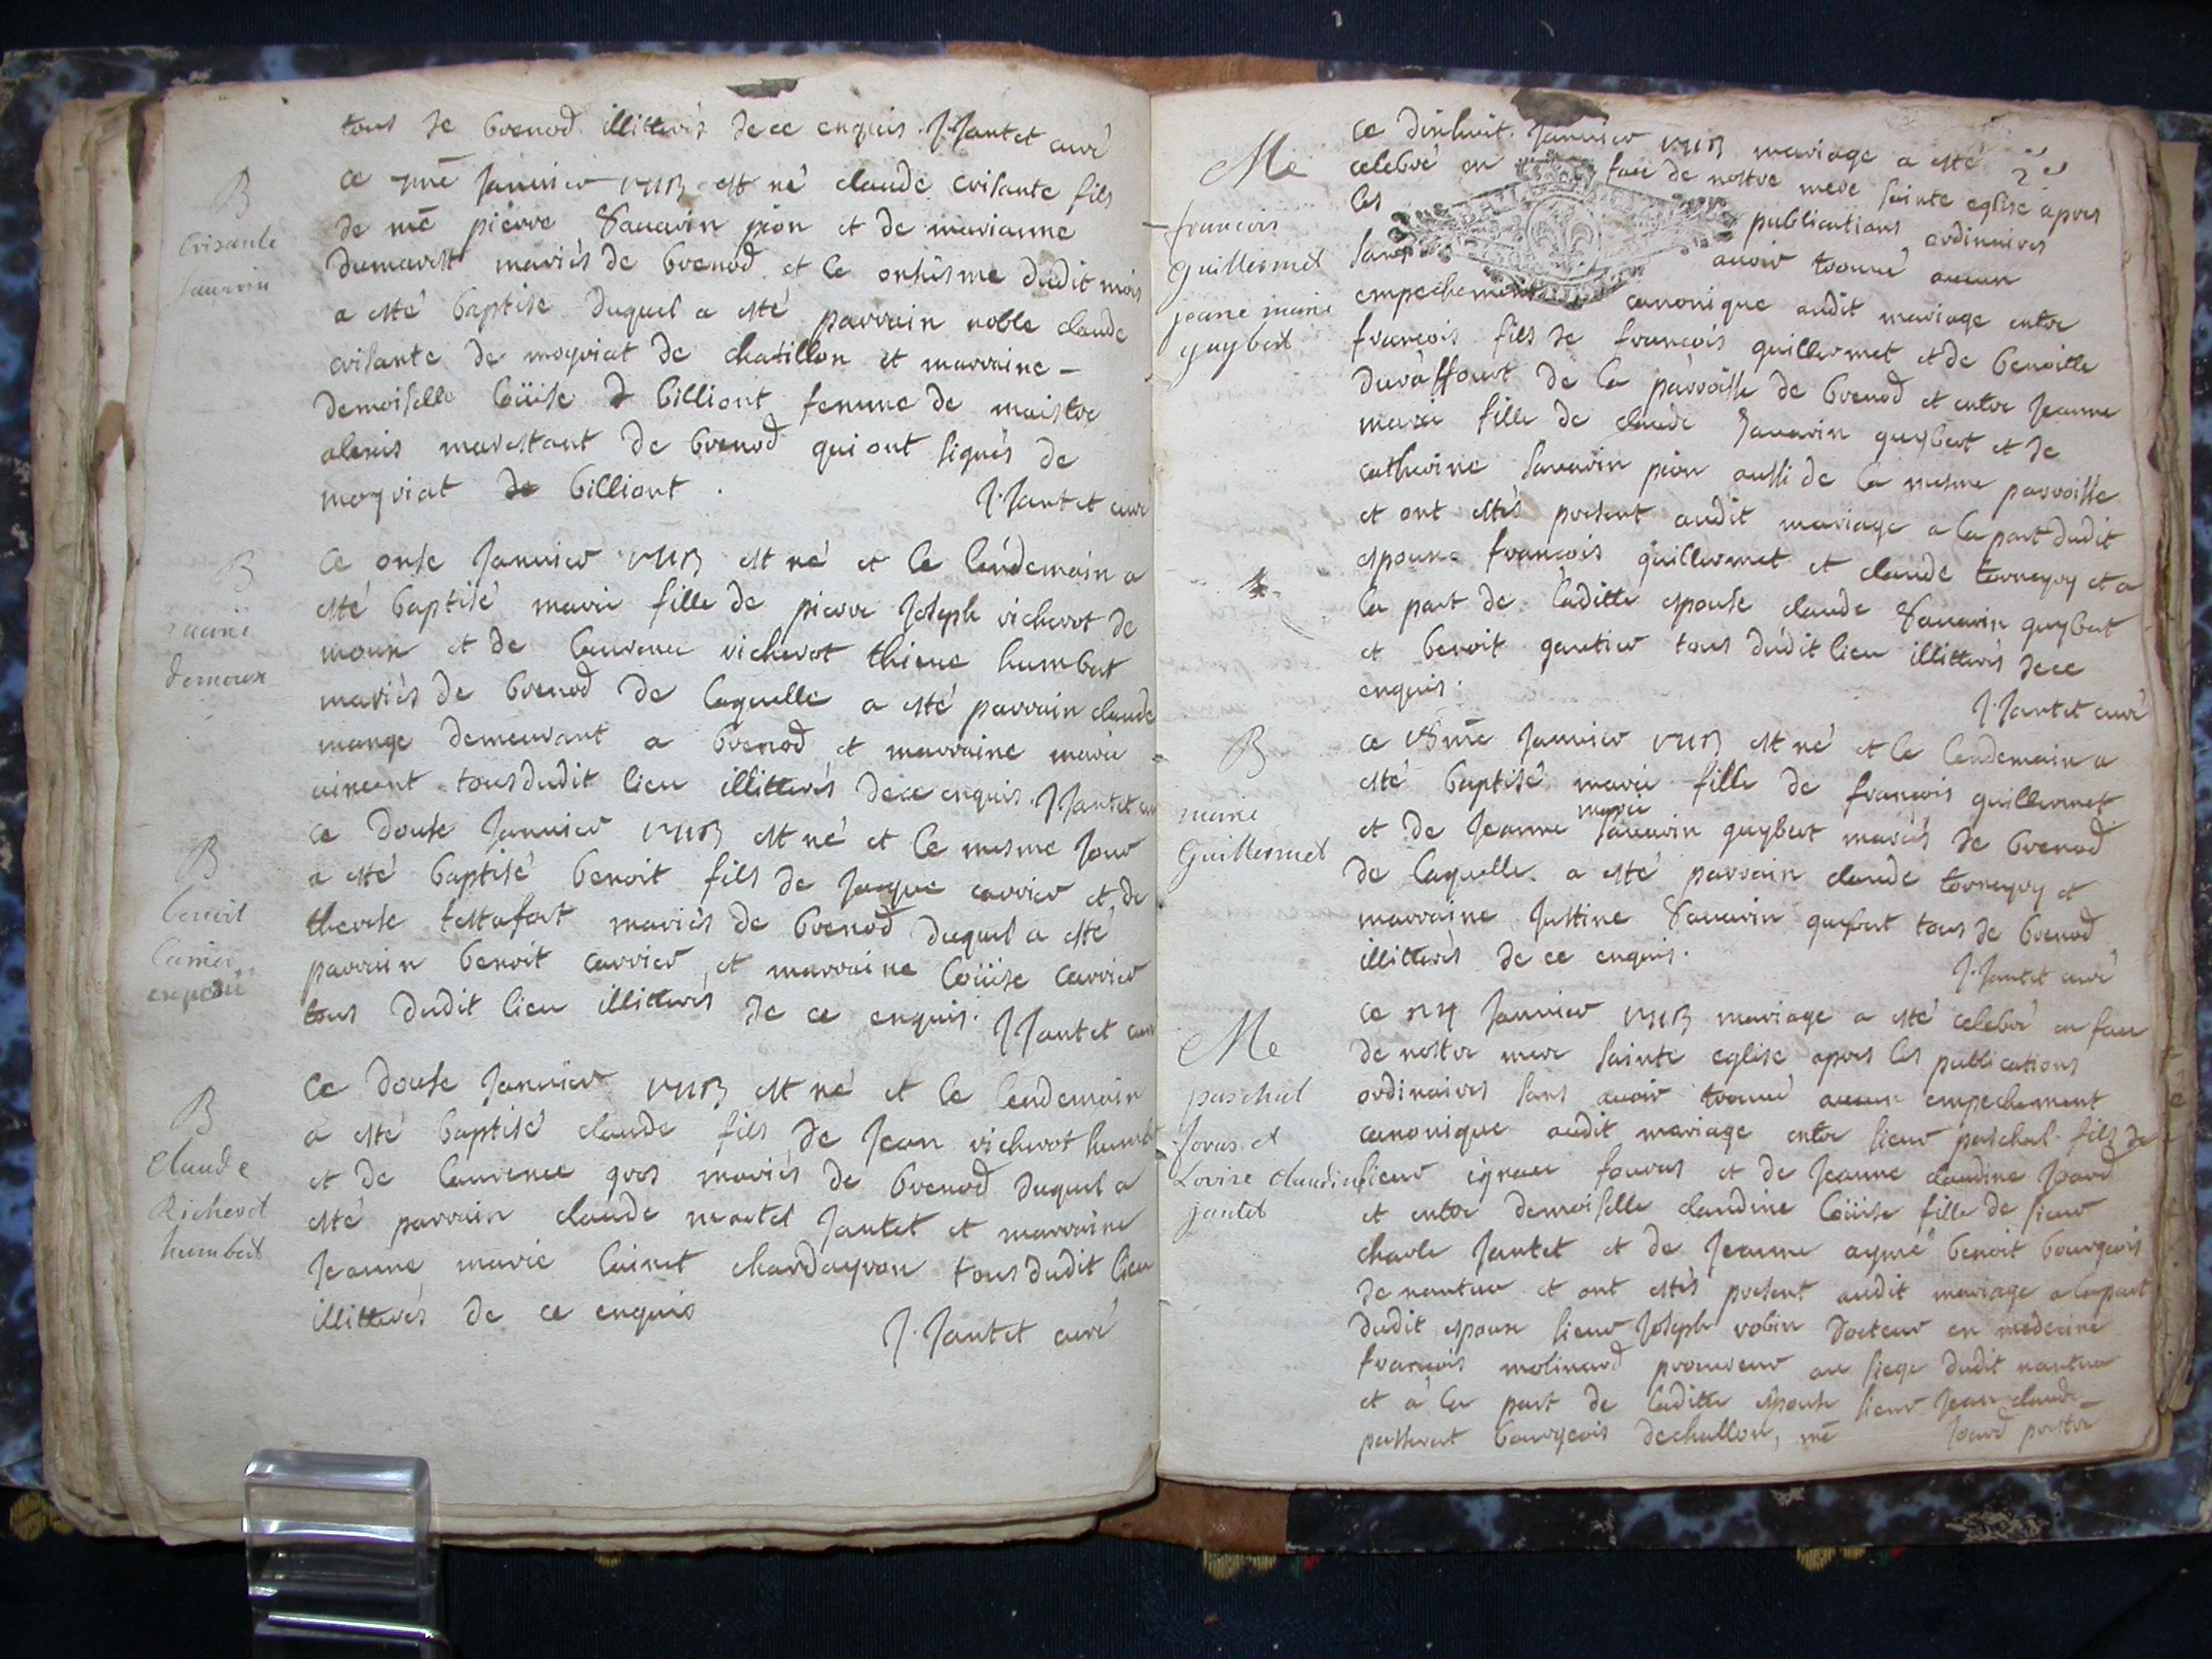 tous de brenod illitteres de ce enquis. J. Jantet curé
B
Crisante
Sauarin
ce janvier est né claude crisante fils
de me pierre Sauarin pion et de marianne
dumarest mariés de brenod et le onsiesme dudit mois
a esté baptise duquel a esté parrain noble claude
crisante de moyriat de chatillon et marraine
demoiselle Loüise billiont femme de maistre
alexis marestant de brenod qui ont signés de
moyriat de billiont.
J. Jantet curé
B
marie
demoux
Ce onse Janvier est né et le lendemain a
esté baptisé marie fille de pierre Joseph richerot de
moux et de Laurence richerot thiene humbert
mariés de brenod de laquelle a esté parrain claude
mange demeurant a brenod et marraine marie
tous dudit lieu illitterés de ce enquis. J Jantet cu
B
benoit
Carrier
ce douse Janvier est né et le mesme jour
a esté baptisé benoit fils de Jacque carrier et de
therese testafort mariés de brenod duquel a esté
parrain benoit carrier et marraine Loüise carrier
tous dudit lieu illitterés de ce enquis.
J Jantet cure
B
claude
Richerot
humbert
Ce douse Janvier est né et le lendemain
a esté baptisé claude fils de Jean richerot humb
et de Laurence gros mariés de brenod duquel a
esté parrain claude martet Jantet et marraine
Jeanne marie chardayron tous dudit lieu
illitterés de ce enquis
J. Jantet curé
Me
francois
Guillermet
jeane marie
guybert
ce dixhuit Janvier mariage a esté
celebré en face de nostre mere sainte eglise apres
les publications ordinaires
sans auoir trouué aucun
empechement canonique audit mariage entre
francois fils de francois guillermet et de benoitte
duraffourt de la parroisse de brenod et entre Jeanne
marie fille de claude Sauarin guybert et de
catherine Sauarin pion aussi de la mesme parroisse
et ont estés present audit mariage a la part dudit
espoux francois guillermet et claude tornayry et a
la part de laditte espouse claude Sauarin guybert
et benoit gautier tous dudit lieu illitterés de ce
enquis.
J. Jantet curé
B
marie
Guillermet
ce 18me Janvier est né et le lendemain a
esté baptisé marie fille de francois guillermet
et de Jeanne marie Sauarin guybert mariés de brenod
de laquelle a esté parrain claude tornayry et
marraine Justine Sauarin guybert tous de brenod
illitterés de ce enquis.
J. Jantet curé
Me
paschal
foras et
Lovise claudine
jantet
ce Janvier mariage a esté celebré en face
de nostre mere sainte eglise apres les publications
ordinaires sans auoir trouué aucun empechement
canonique audit mariage entre sieur paschal fils de
sieur ignace foras et de Jeanne claudine Joard
et entre demoiselle claudine Loüise fille de sieur
charle Jantet et de Jeanne aymé benoit bourgeois
de nantua et ont estés present audit mariage a la part
dudit espoux sieur Joseph robin docteur en medecine
francois molinard procureur au siege dudit nantua
et a la part de laditte espouse sieur Jean claude
passerat bourgeois de chatillon, me Joard prestre